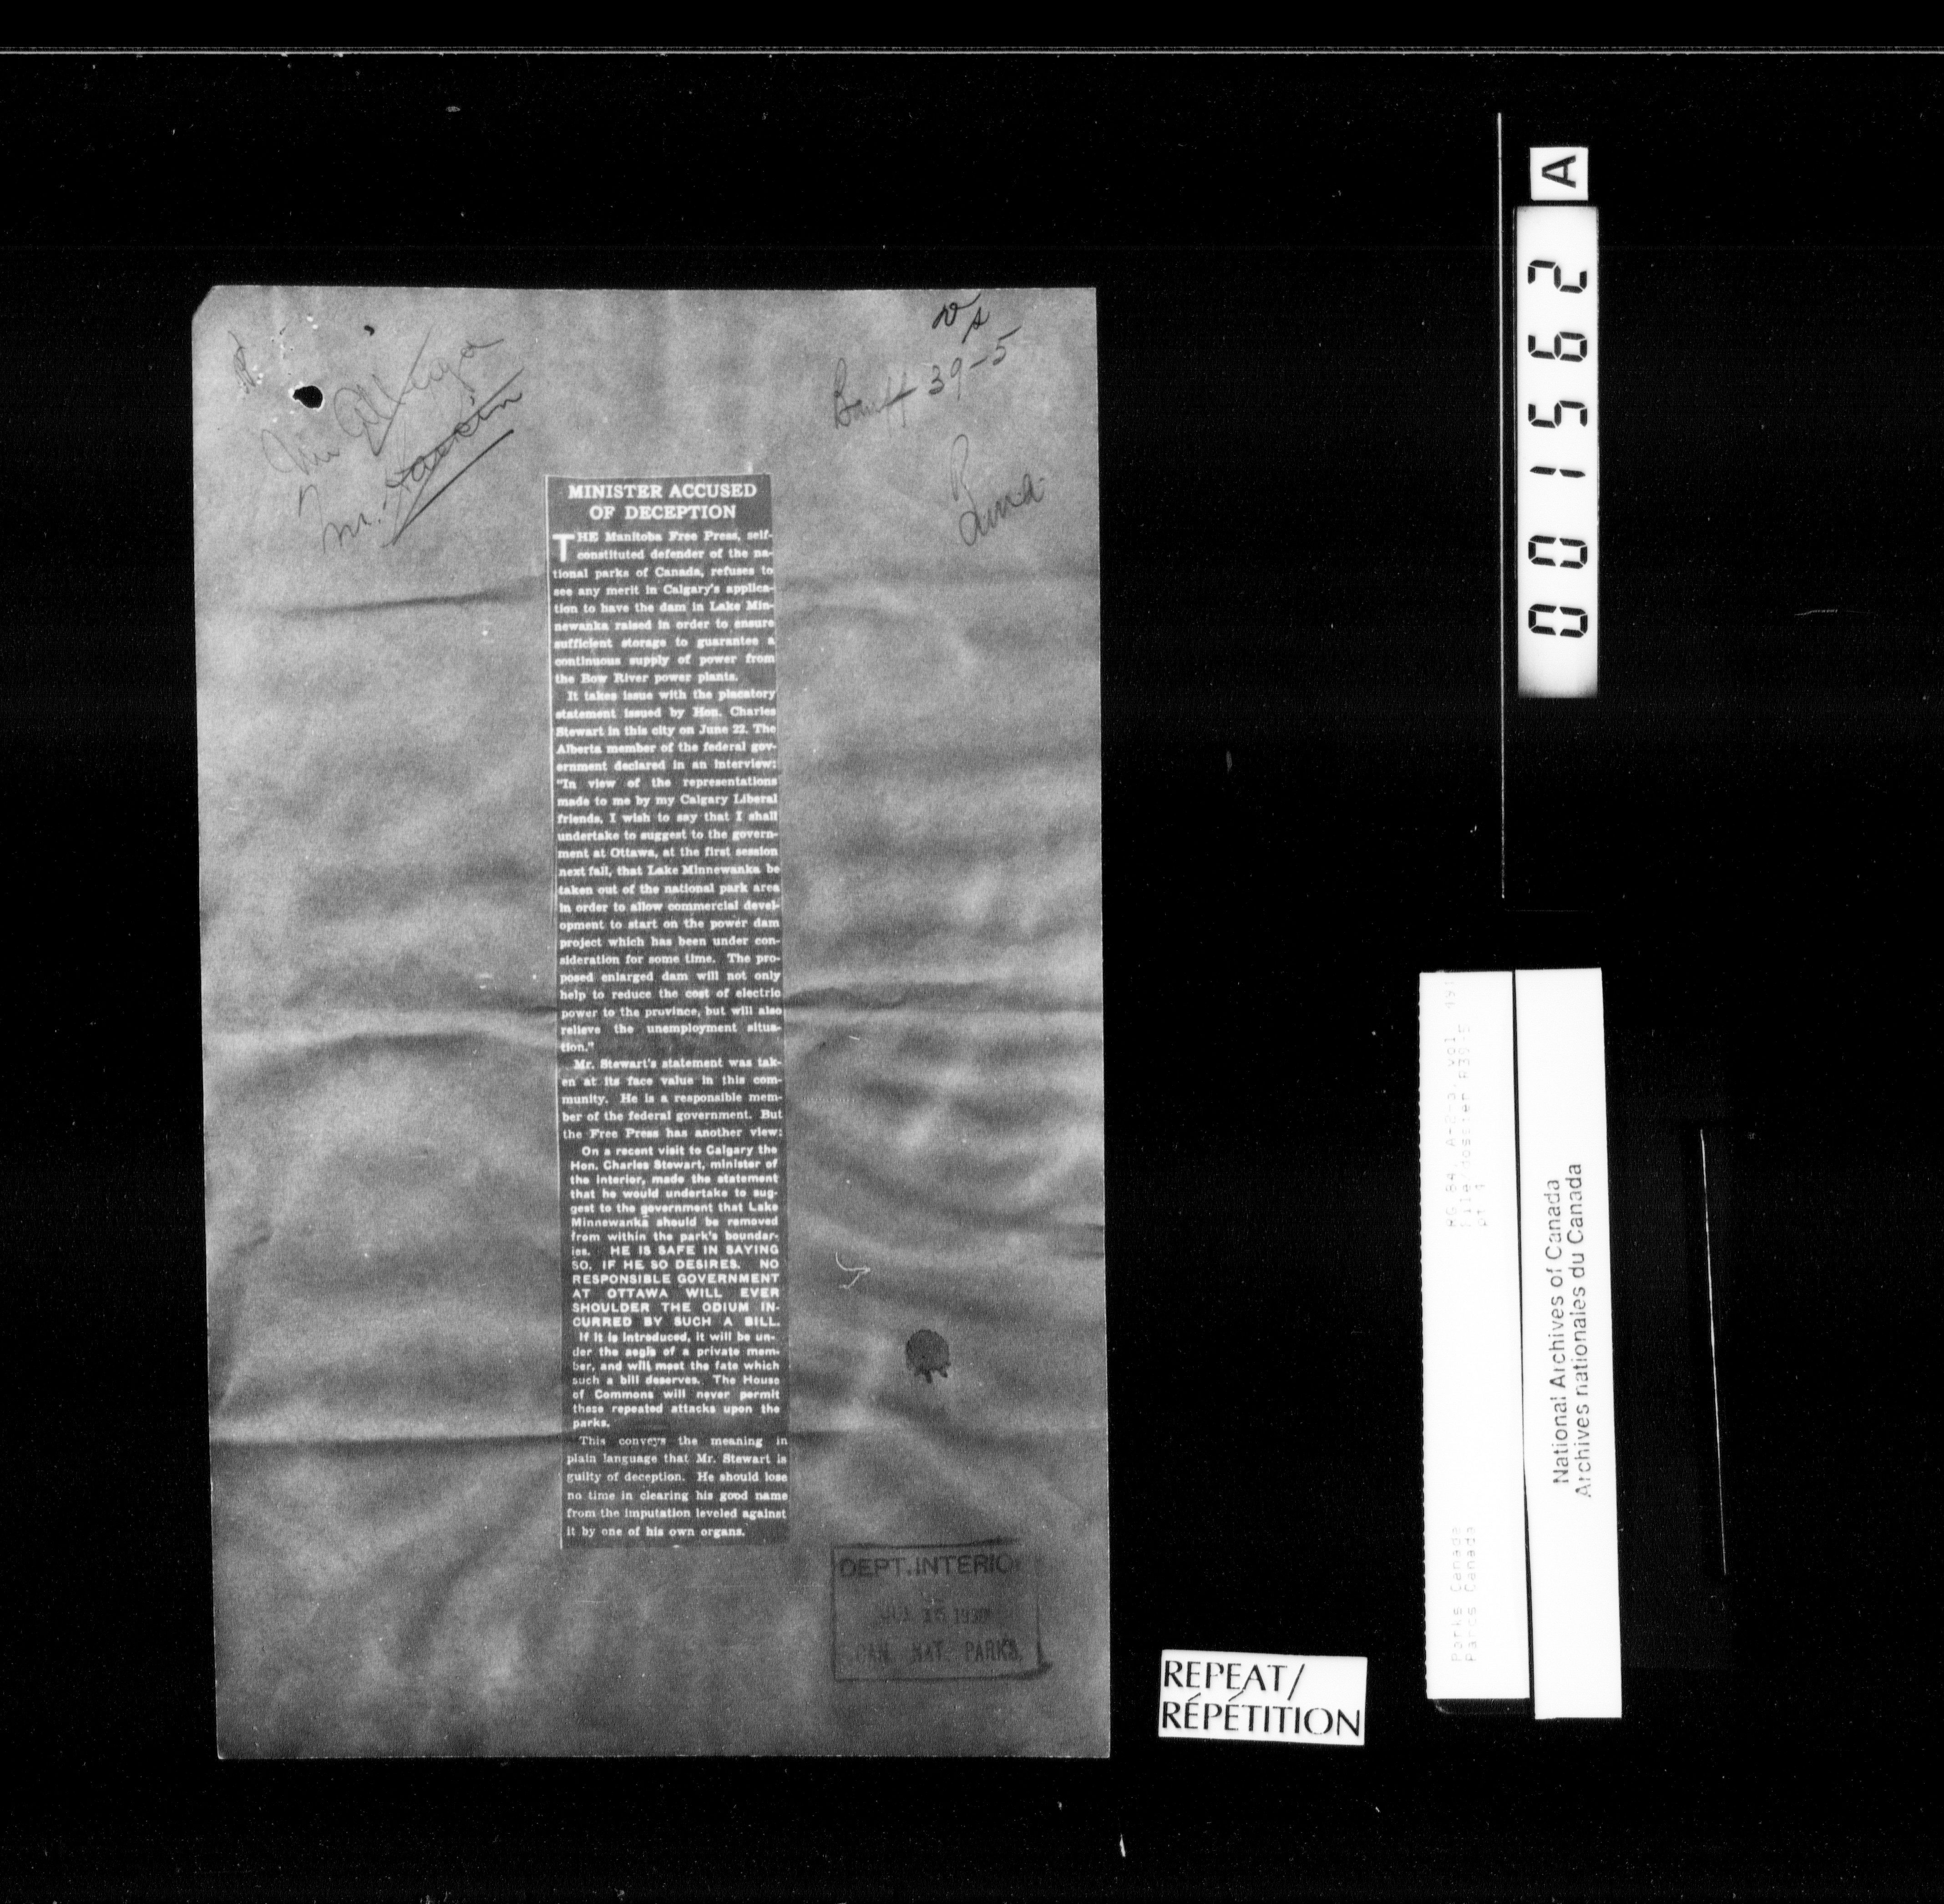 Banff 39-5
MINISTER ACCUSED
OF DECEPTION
THE Manitoba Free Press, self-
constituted defender of the na-
tional parks of Canada, refuses to
see any merit in Calgary's applica-
tion to have the dam in Lake Min-
newanka raised in order to ensure
sufficient storage to guarantee a
continuous supply of power from
the Bow River power plants.
It takes issue with the placatory
statement issued by Hon. Charles
Stewart in this city on June 22. The
Alberta member of the federal gov-
ernment declared in an interview:
"In view of the representations
made to me by my Calgary Liberal
friends, I wish to say that I shall
undertake to suggest to the govern-
ment at Ottawa, at the first session
next fall, that Lake Minnewanka be
taken out of the national park area
in order to allow commercial devel-
opment to start on the power dam
project which has been under con-
sideration for some time. The pro-
posed enlarged dam will not only
help to reduce the cost of electric
power to the province, but will also
relieve the unemployment situa-
tion."
Mr. Stewart's statement was tak-
en at its face value in this com-
munity. He is a responsible mem-
ber of the federal government. But
the Free Press has another view:
On a recent visit to Calgary the
Hon. Charles Stewart, minister of
the interior, made the statement
that he would undertake to sug-
gest to the government that Lake
Minnewanka should be removed
from within the park's boundar-
ies. HE IS SAFE IN SAYING
SO, IF HE SO DESIRES. NO
RESPONSIBLE GOVERNMENT
AT OTTAWA WILL EVER
SHOULDER THE ODIUM IN-
CURRED BY SUCH A BILL.
If it is introduced, it will be un-
der the aegis of a private mem-
ber, and will meet the fate which
such a bill deserves. The House
of Commons will never permit
these repeated attacks upon the
parks.
This conveys the meaning in
plain language that Mr. Stewart is
guilty of deception. He should lose
no time in clearing his good name
from the imputation leveled against
it by one of his own organs.
DEPT. INTERIOR
15 1930
CAN. NAT. PARKS.
REPEAT/
RÉPÉTITION
A
001562
National Archives of Canada
Archives nationales du Canada
Parks Canada
Parcs Canada